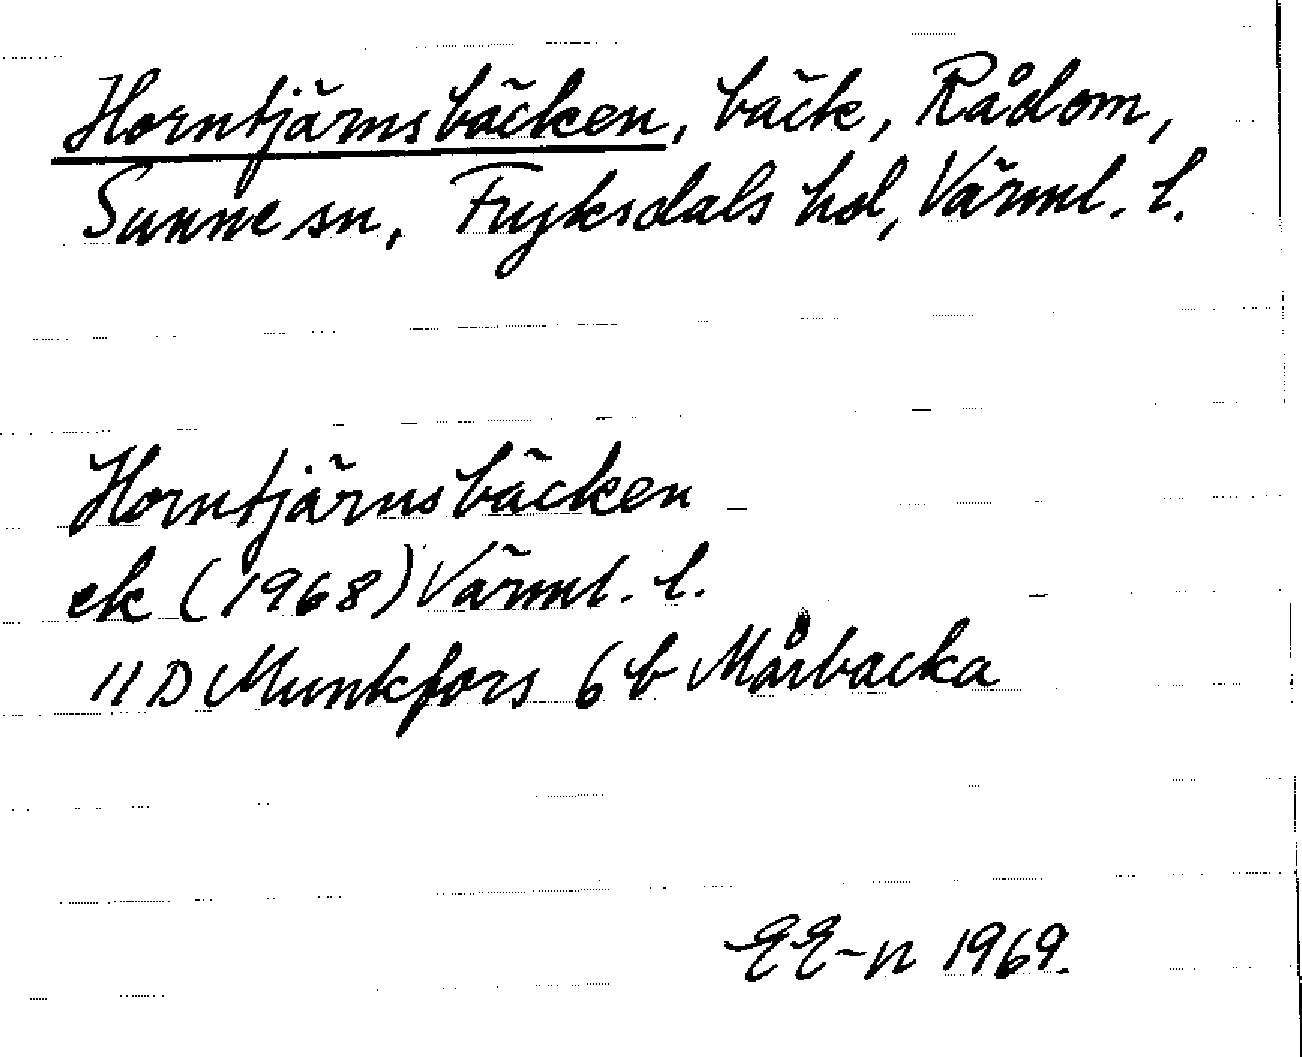 Horntjärnsbäcken, bäck, Rådom,
Sunne sn, Fryksdals hd, Värml. l.
Horntjärnsbäcken
ek (1968) Värml. l.
11 D Munkfors 6 b Mårbacka
EE-n 1969.